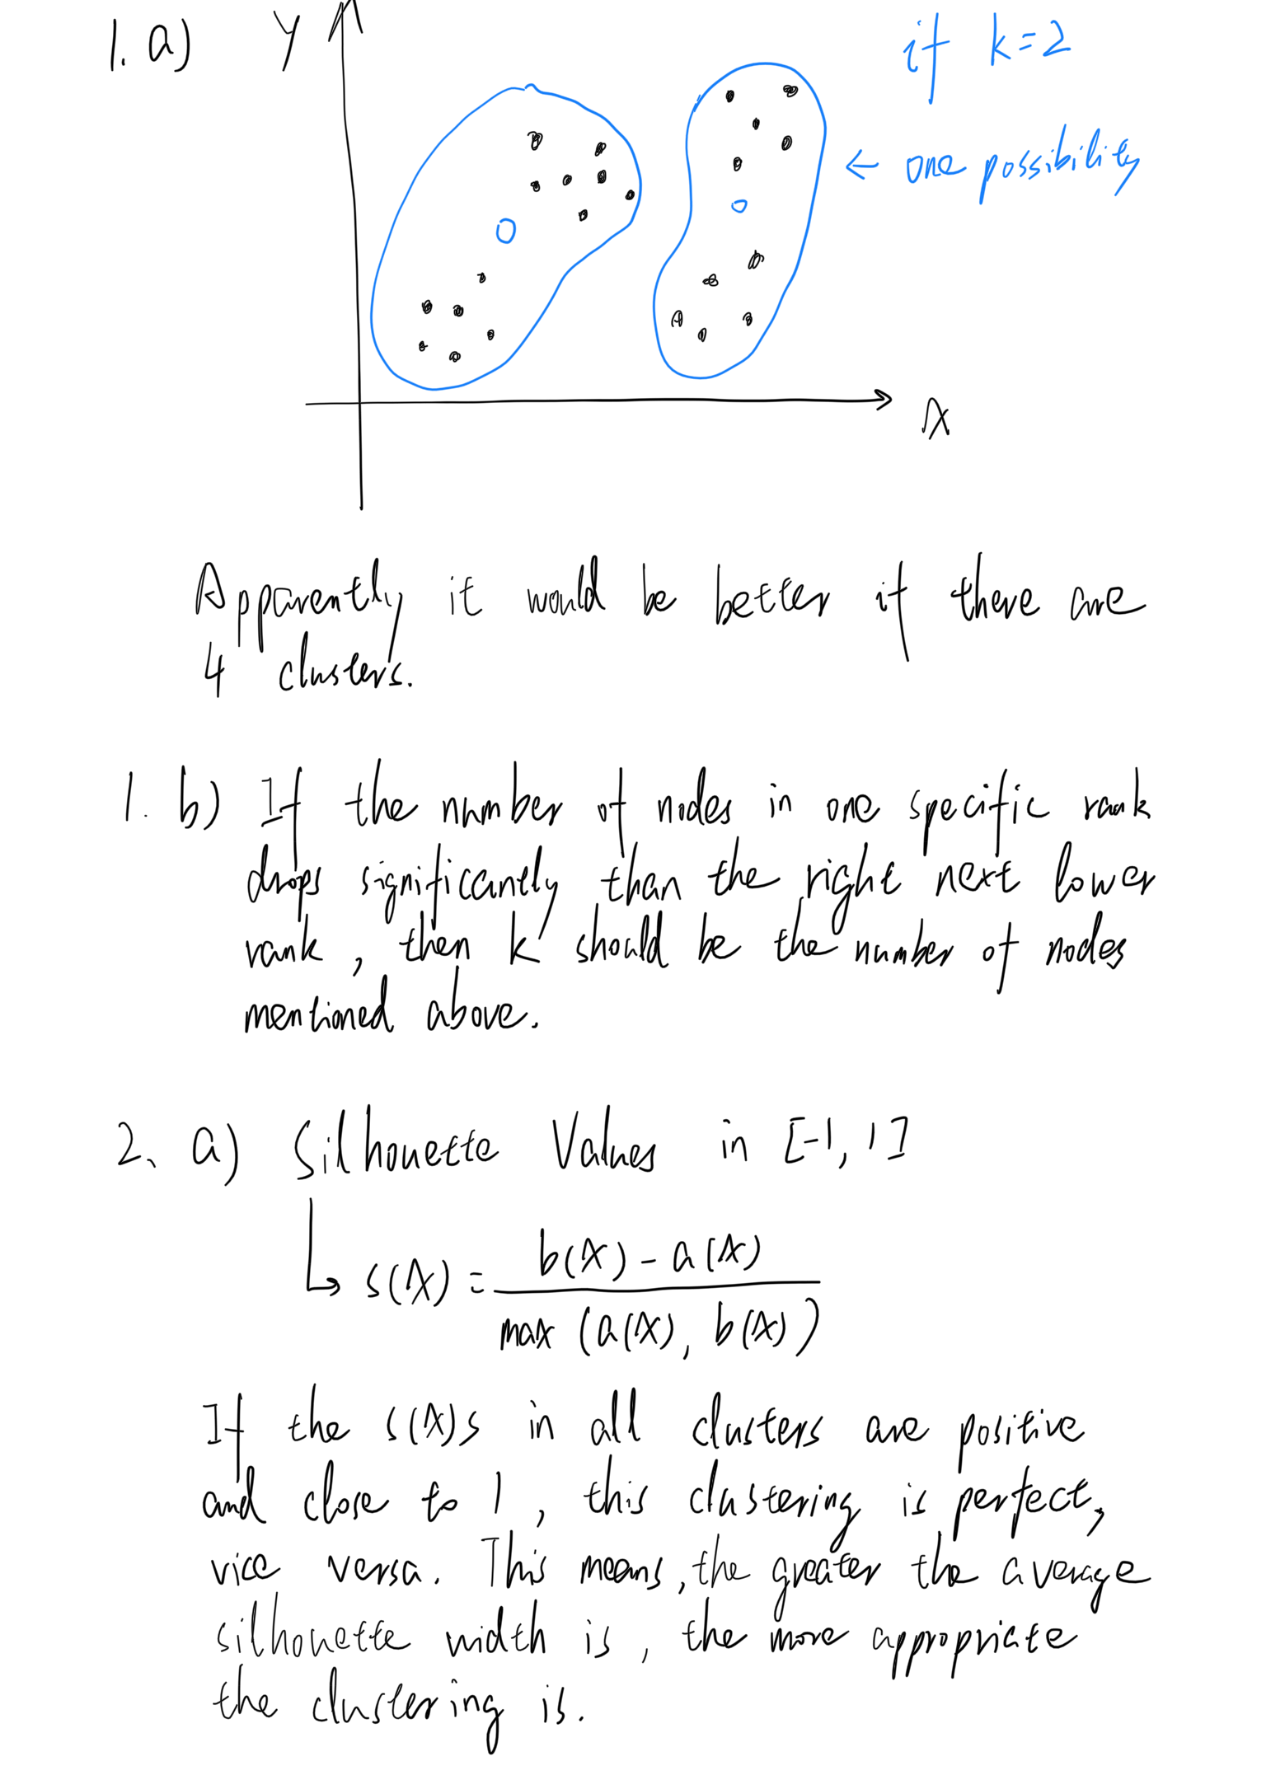 1. a) Y
if k=2
← one possibility
X
Apparently it would be better if there are
4 clusters.
1. b) If the number of nodes in one specific rank
drops significantly than the right next lower
rank, then k should be the number of nodes
mentioned above.
2. a) Silhouette Values in [-1, 1]
↳ s(X) = b(X) - a(X)
max (a(X), b(X))
If the s(X)s in all clusters are positive
and close to 1, this clustering is perfect,
vice versa. This means, the greater the average
silhouette width is, the more appropriate
the clustering is.